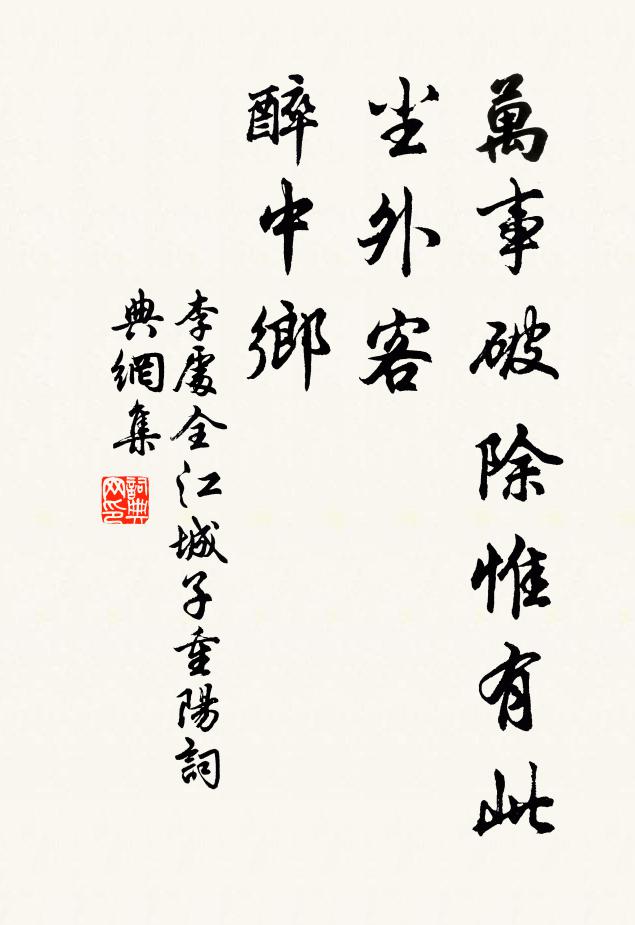 萬事破除惟有此
尘外客
醉中鄉
李處全江城子重陽詞
典網集
詞典网印